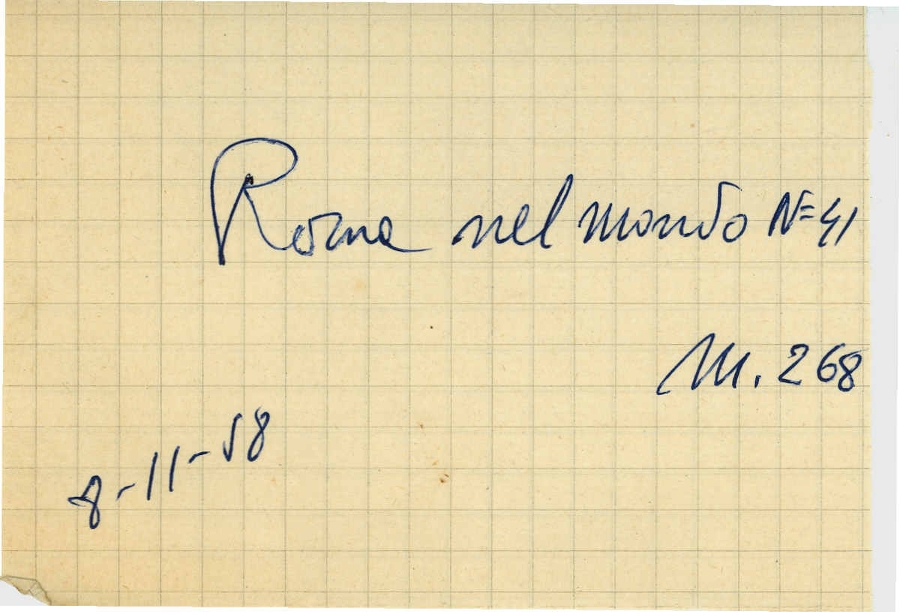 Roma nel mondo N= 41
M. 268
8-11-58